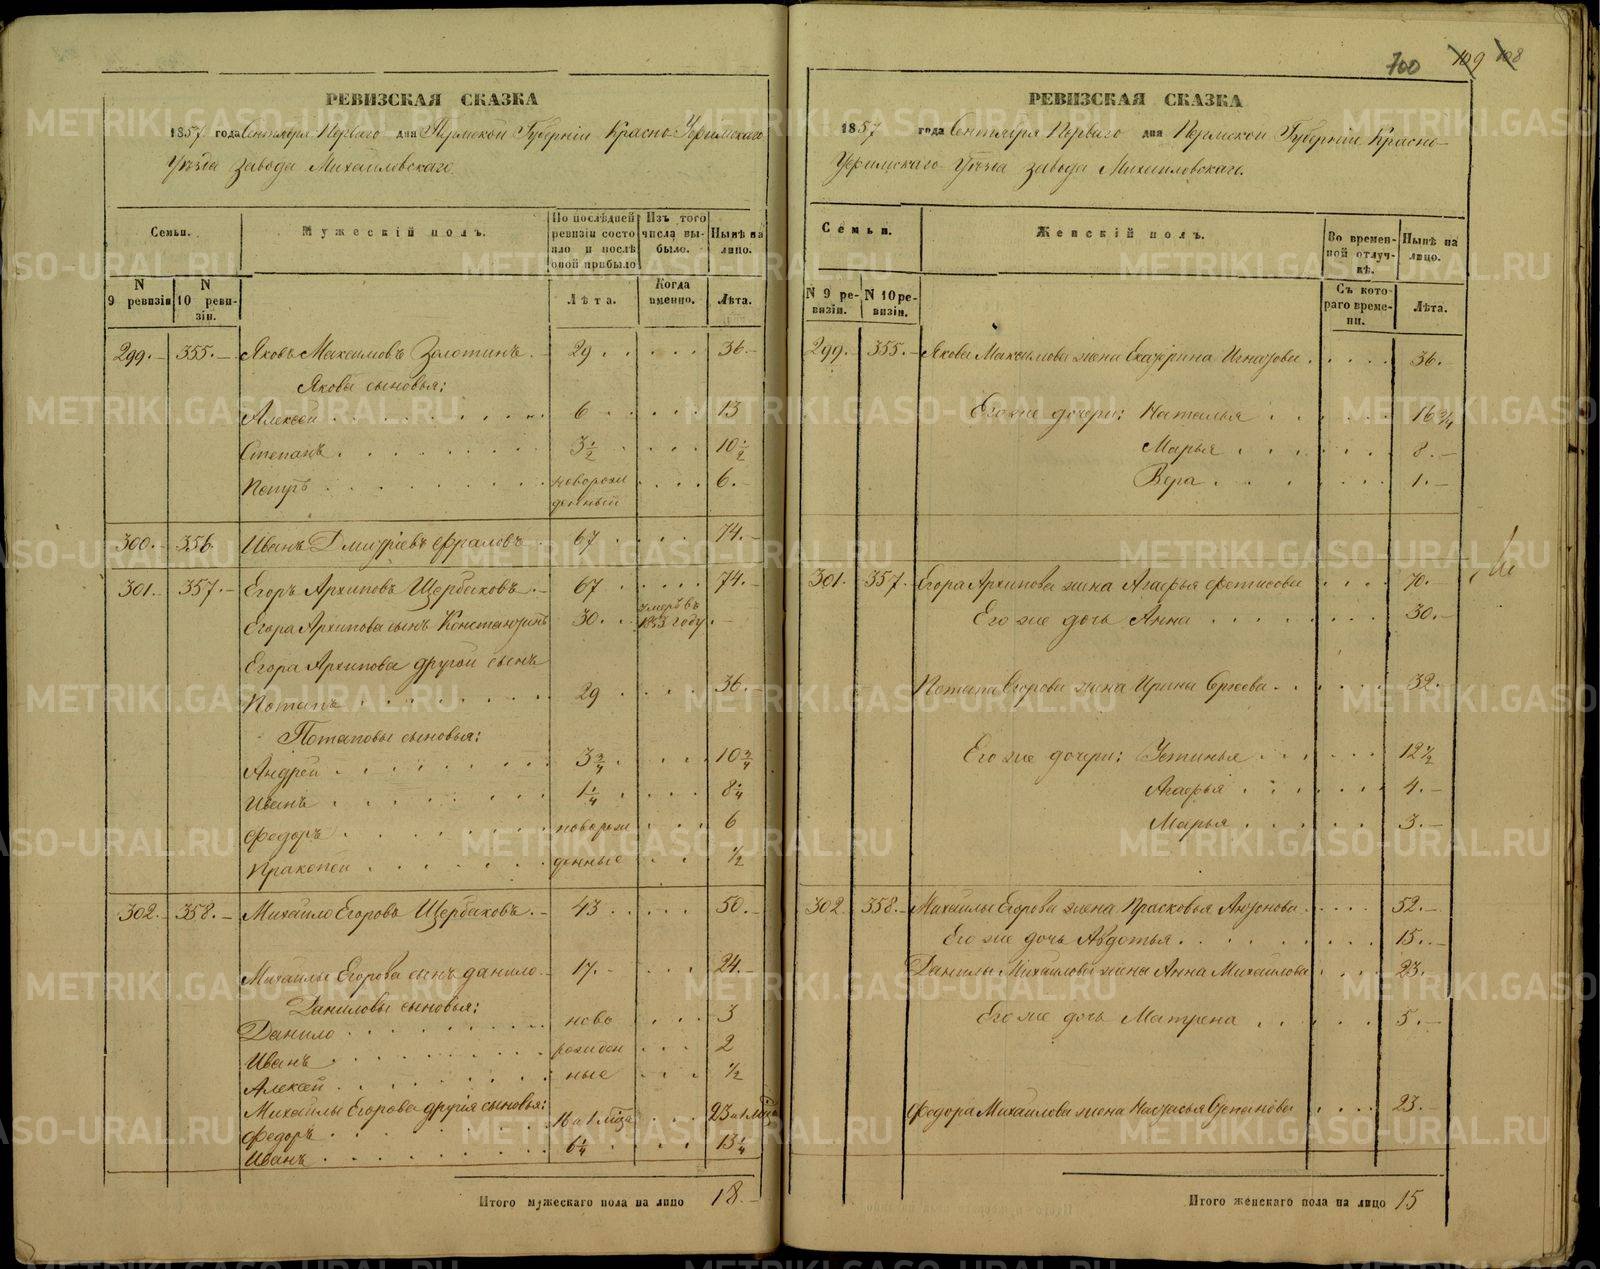 700 109 108
РЕВИЗСКАЯ СКАЗКА
1857 года Сентября Перваго дня Пермской Губерніи Красно-Уфимскаго
Уѣзда завода Михайловскаго.
Семьи.
Мужескій полъ.
По послѣдней ревизіи состояло и послѣ оной прибыло
Изъ того числа выбыло.
Нынѣ на лицо.
N 9 ревизіи
N 10 ревизіи.
Лѣта.
Когда именно.
Лѣта.
299. 355. Яковъ Максимовъ Золотинъ 29 36.
Якова сыновья:
Алексѣй 6 13
Степанъ 3 1/2 10 1/2
Петръ новорожденный 6.
300. 356. Иванъ Дмитріевъ Фраловъ 67 74.
301. 357. Егоръ Архиповъ Щербаковъ 67 74.
Егора Архипова сынъ Констянтинъ 30 умеръ въ 1853 году
Егора Архипова другой сынъ
Потапъ 29 36.
Потаповы сыновья:
Андрей 3 3/4 10 3/4
Иванъ 1 1/4 8 1/4
Федоръ новорож 6
Пракопей денные 1/2
302. 358. Михайло Егоровъ Щербаковъ 43 50.
Михайлы Егорова сынъ Данило 17. 24.
Даниловы сыновья:
Данило ново 3
Иванъ рожден 2
Алексѣй ные 1/2
Михайлы Егорова другія сыновья:
Федоръ 16 и 1 мѣца 23 и 1 мѣц
Иванъ 6 1/4 13 1/4
Итого мужескаго пола на лицо 18.
РЕВИЗСКАЯ СКАЗКА
1857 года Сентября Перваго дня Пермской Губерніи Красно-
Уфимскаго Уѣзда завода Михайловскаго.
Семьи.
Женскій полъ.
Во временной отлучкѣ.
Нынѣ на лицо.
N 9 ревизіи.
N 10 ревизіи.
Съ котораго времени.
Лѣта.
299. 355. Якова Максимова жена Екатерина Игнатова 36.
Его же дочери: Наталья 16 3/4
Марья 8.
Вера 1.
301. 357. Егора Архипова жена Агафья Фетисова 70.
Его же дочь Анна 30.
Потапа Егорова жена Ирина Сергеева 32.
Его же дочери: Устинья 12 1/2
Агафья 4.
Марья 3.
302 358. Михайлы Егорова жена Прасковья Антонова 52.
Его же дочь Авдотья 15.
Данилы Михайлова жена Анна Михайлова 23.
Его же дочь Матрена 5.
Федора Михайлова жена Настасья Степанова 23.
Итого женскаго пола на лицо 15
METRIKI.GASO-URAL.RU